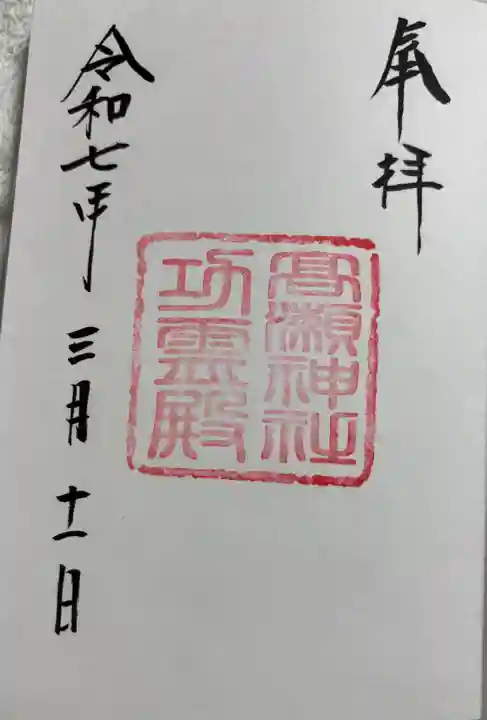 奉拝
髙瀬神社
功霊殿
令和七年
三月十一日